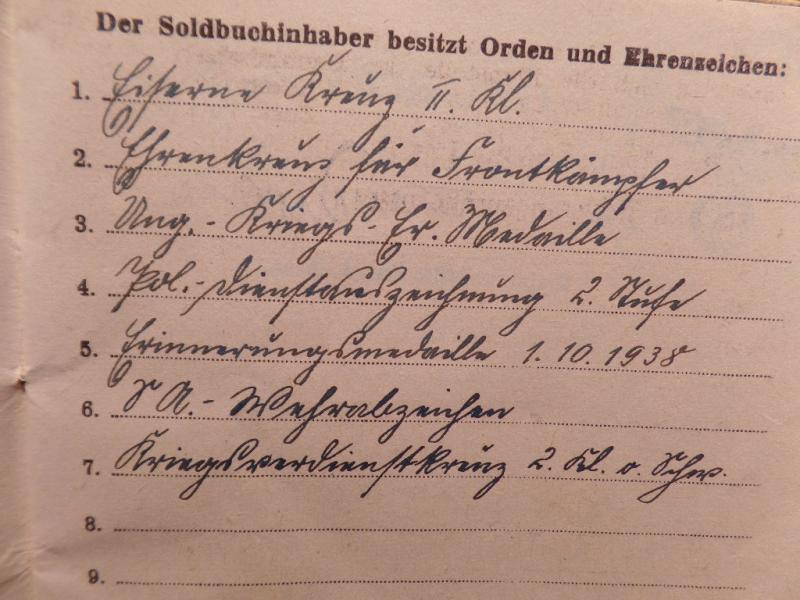 Der Soldbuchinhaber besitzt Orden und Ehrenzeichen:
1. Eiserne Kreuz II. Kl.
2. Ehrenkreuz für Frontkämpfer
3. Ung.-Kriegs-Er. Medaille
4. Pol.-Dienstauszeichnung 2. Stufe
5. Erinnerungsmedaille 1.10.1938
6. S A.-Wehrabzeichen
7. Kriegsverdienstkreuz 2. Kl. o. Schw.
8.
9.